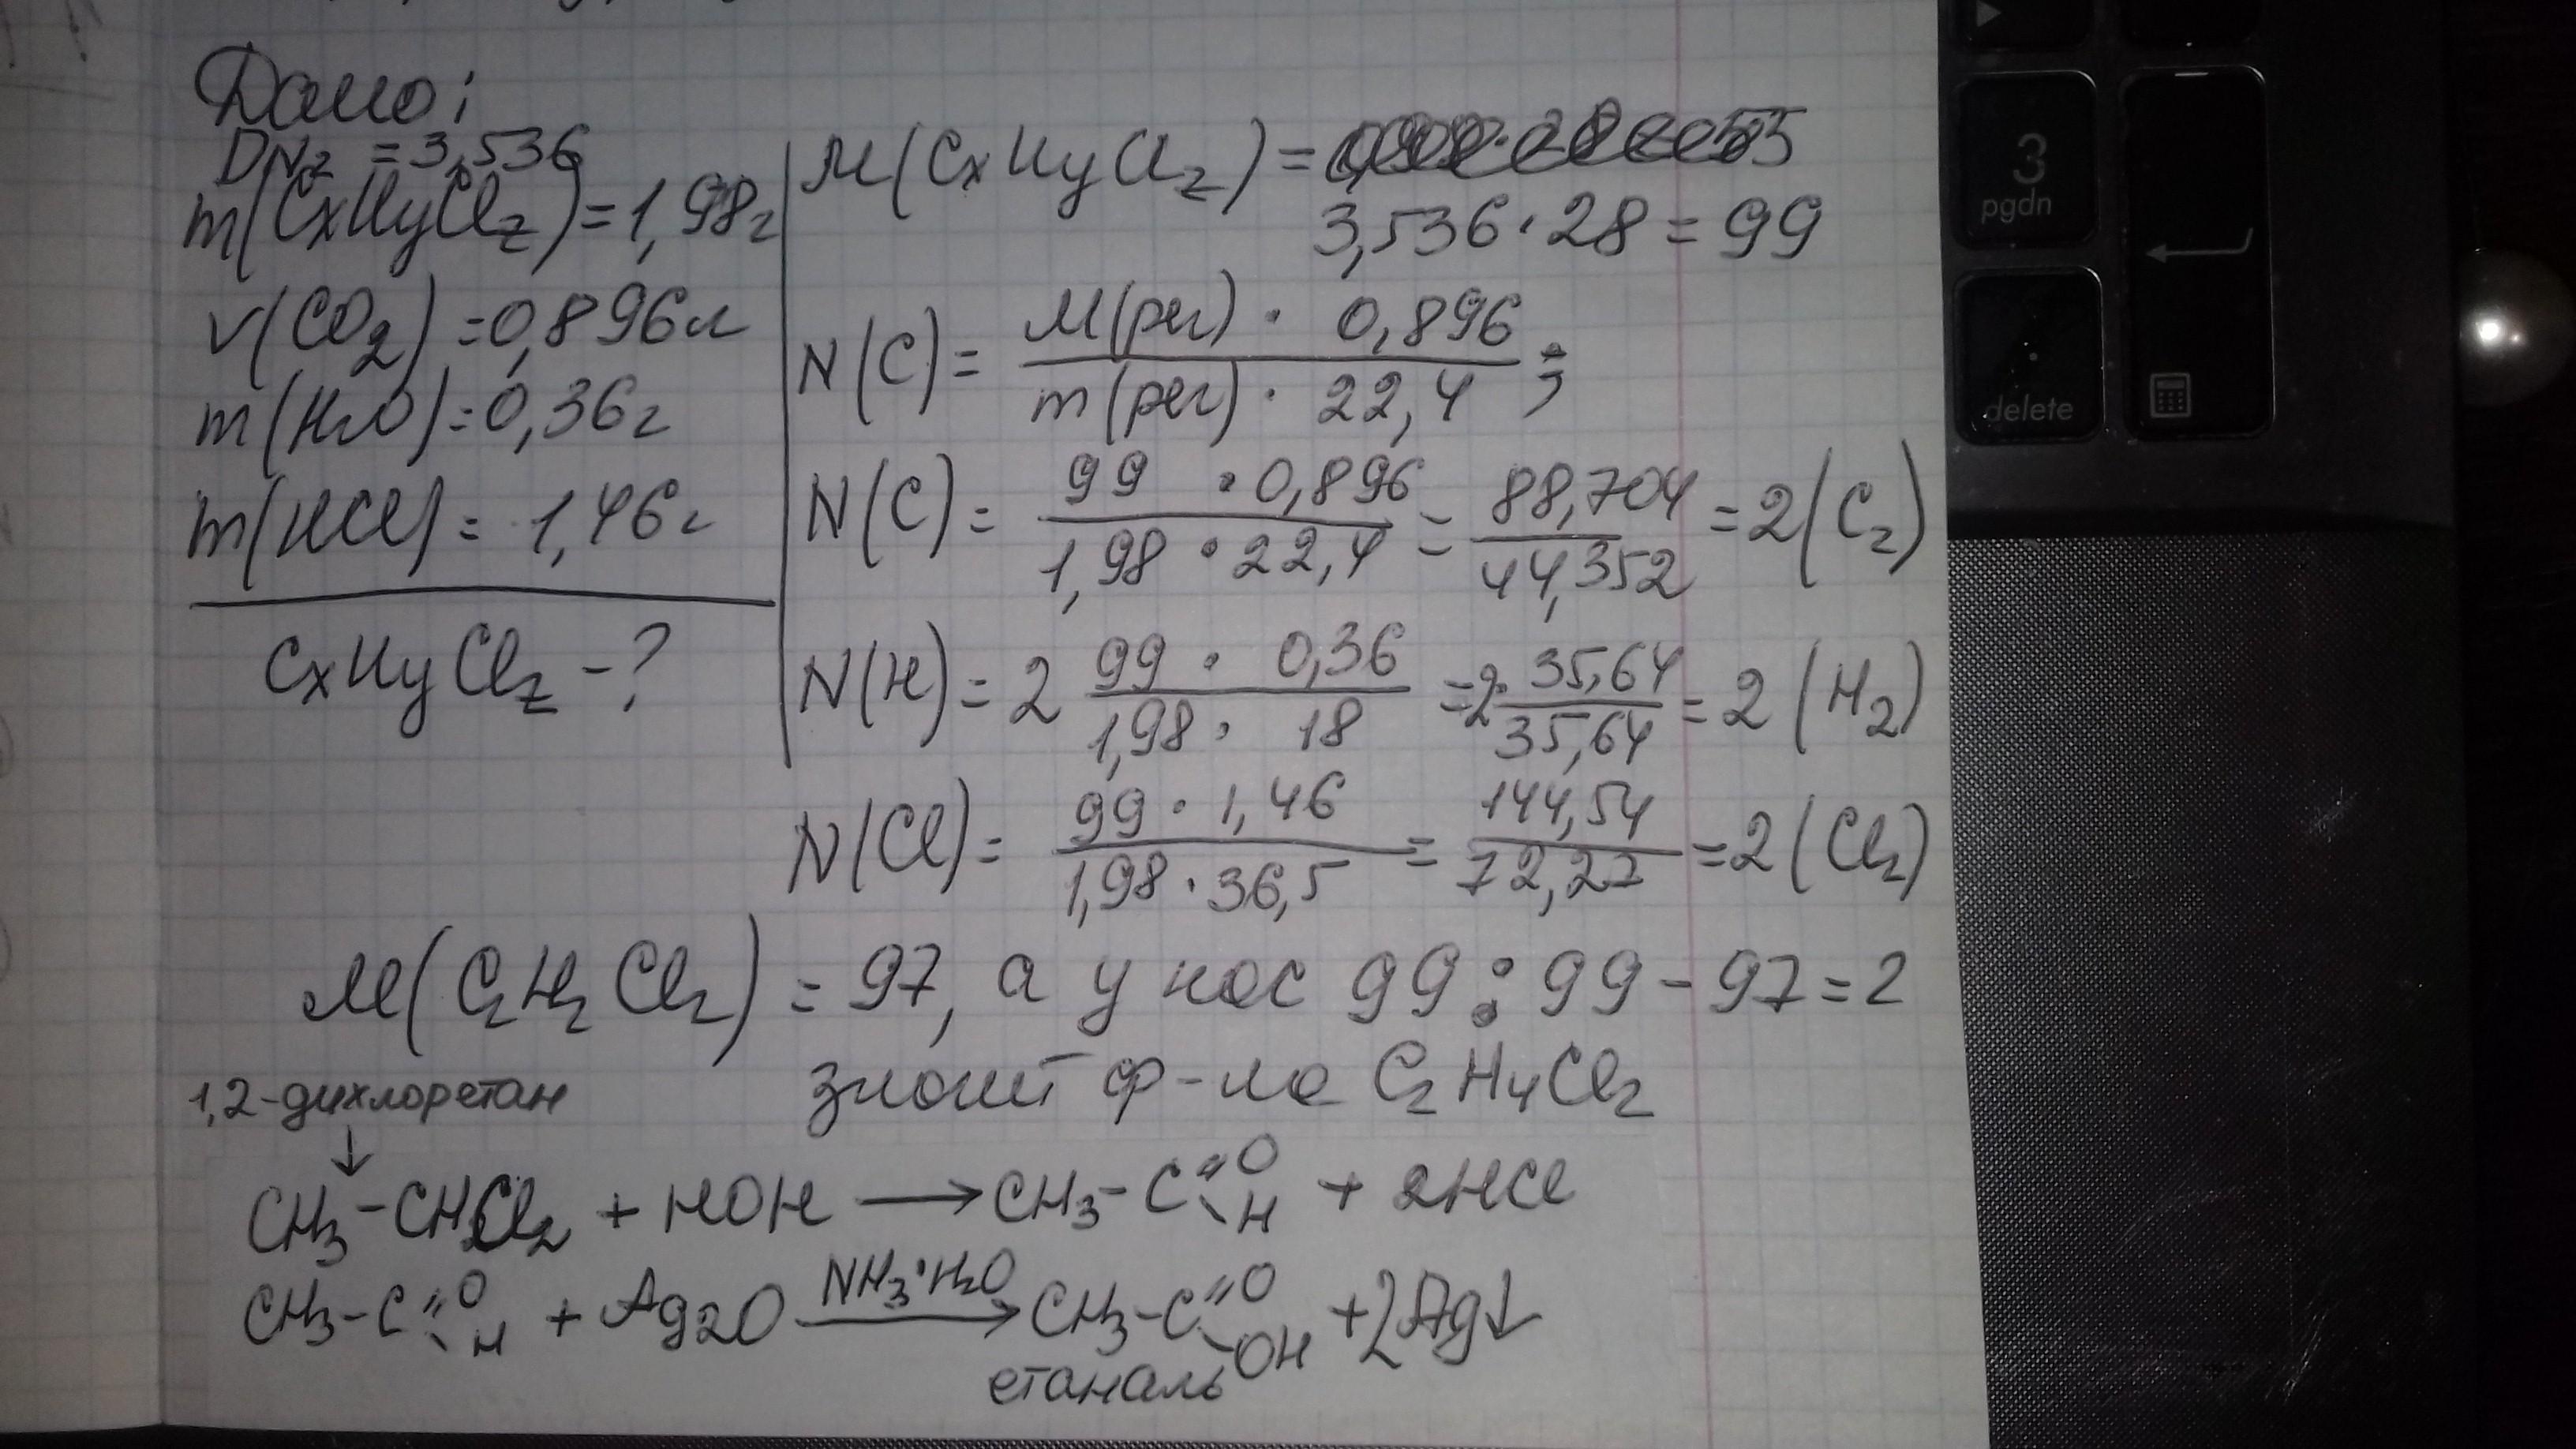 Дано:
D N2 = 3,536
m(CxHyClz) = 1,98г
v(CO2) = 0,896л
m(H2O) = 0,36г
m(HCl) = 1,46г
CxHyClz - ?
M(CxHyClz) =
3,536 · 28 = 99
N(C) = M(реч) · 0,896 / m(реч) · 22,4 ;
N(C) = 99 · 0,896 / 1,98 · 22,4 = 88,704 / 44,352 = 2 (C2)
N(H) = 2 99 · 0,36 / 1,98 · 18 = 2· 35,64 / 35,64 = 2 (H2)
N(Cl) = 99 · 1,46 / 1,98 · 36,5 = 144,54 / 72,27 = 2 (Cl2)
M(C2H2Cl2) = 97, а у нас 99 : 99 - 97 = 2
значит ф-ла C2H4Cl2
1,2-дихлоретан
↓
CH3-CHCl2 + HOH → CH3-C=O-H + 2HCl
CH3-C=O-H + Ag2O NH3·H2O → CH3-C=O-OH + 2Ag↓
етаналь
3
pgdn
.
delete